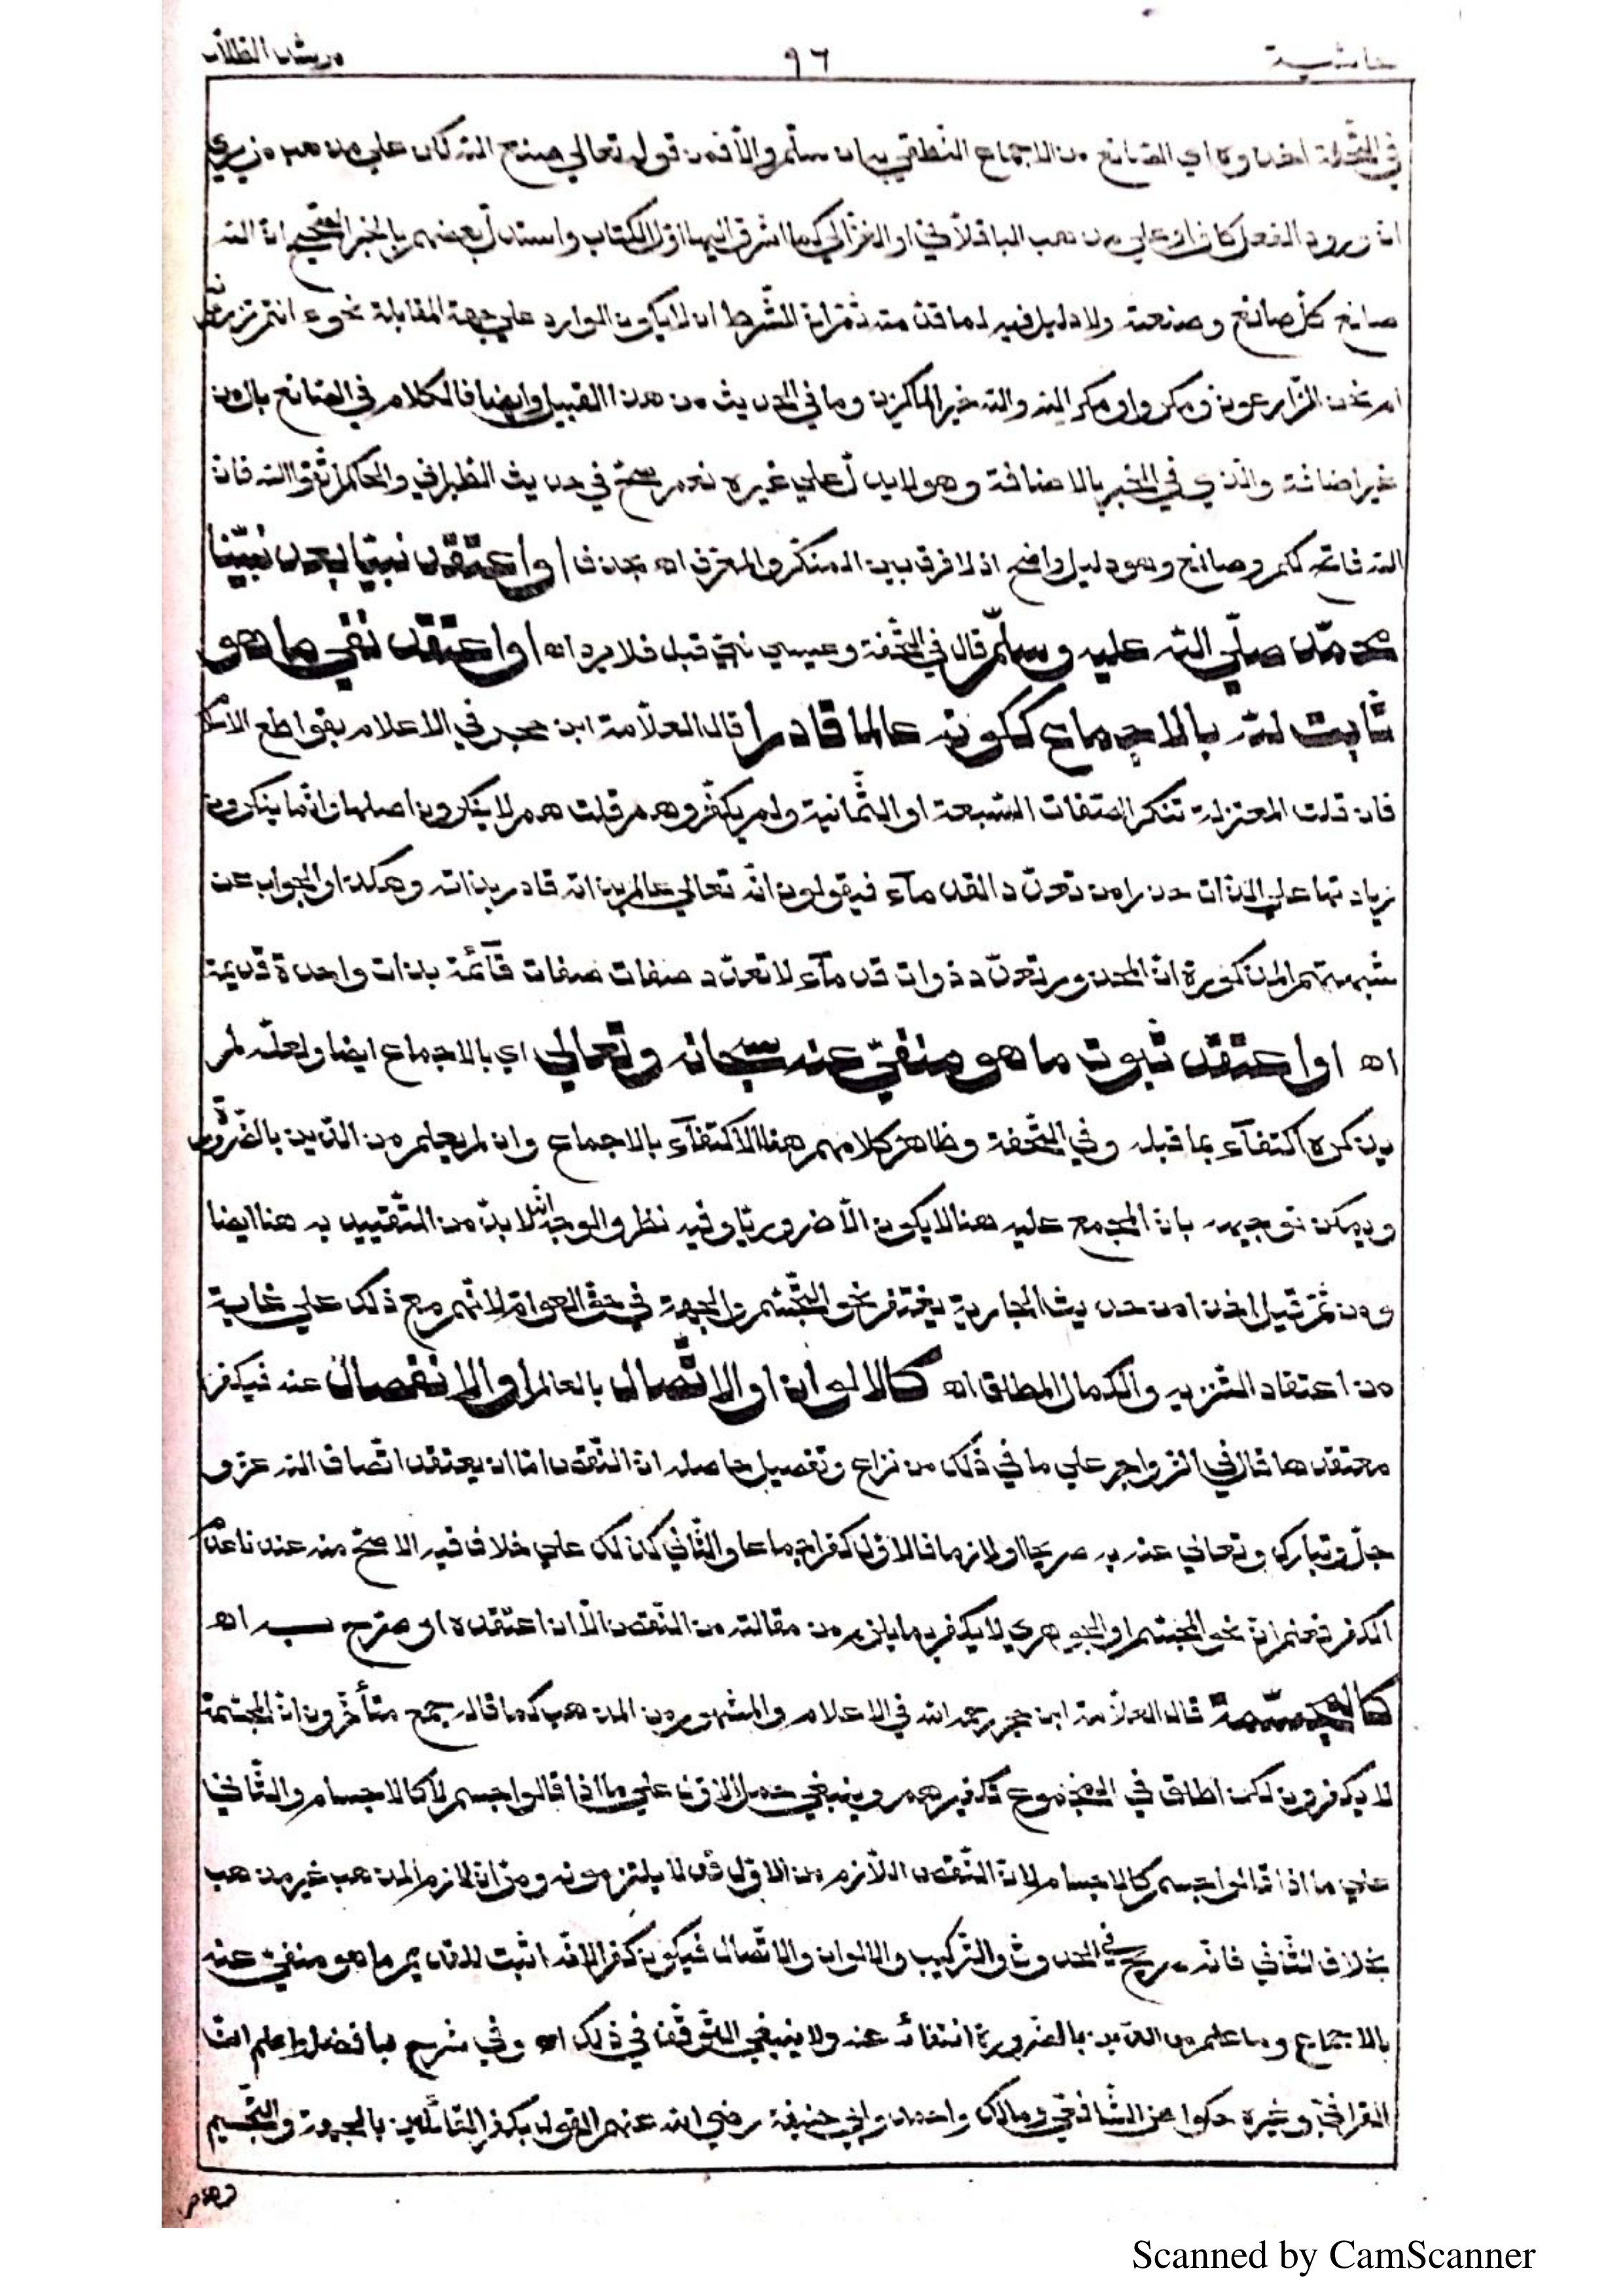 حاشية ٩٦ مرشد الطلاب
في التحفة اخذوه اي الصانع من الاجماع النطقي بيان سلم والا فمن قوله تعالى صنع الله كان على مذهب من يرى
ان ورود الفعل كاف او على مذهب الباقلاني او الغزالي كما اشرق اليها اول الكتاب واستدل بعضهم بالخبر الصحيح ان الله
صانع كل صانع وصنعته ولا دليل فيه لما قدمته ثم ان الشرط ان لا يكون الوارد على جهة المقابلة نحو ءانتم تزرعونه
ام نحن الزارعون ومكروا ومكر الله والله خير الماكرين وما في الحديث من هذا القبيل وايضا فالكلام في الصانع بال من
غير اضافة والذي في الخبر بالاضافة وهو لا يدل على غيره نعم صح في حديث الطبراني والحاكم اتقوا الله فان
الله فاتح لكم وصانع وهو دليل واضح اذ لا فرق بين المنكر والمعرف اه بحذف او اعتقد نبيا بعد نبينا
محمد صلى الله عليه وسلم قال في التحفة وعيسى نبي قبل فلا يرد اه او اعتقد نفي ما هو
ثابت لله بالاجماع ككونه عالما قادرا قال العلامة ابن حجر في الاعلام بقواطع الاسلام
فان قلت المعتزلة تنكر الصفات السبعة او الثمانية ولم يكفروهم قلت هم لا ينكرون اصلها وانما ينكرون
زيادتها على الذات حذرا من تعدد القدماء فيقولون انه تعالى عالم بذاته قادر بذاته وهكذا والجواب عن
شبهتهم المذكورة ان المحذور تعدد ذوات قدماء لا تعدد صفات صفات قائمة بذات واحدة قديمة
اه او اعتقد ثبوت ما هو منفي عنه سبحانه وتعالى اي بالاجماع ايضا ولعله لم
يذكره اكتفاء بما قبله وفي التحفة وظاهر كلامهم هنا الاكتفاء بالاجماع وان لم يعلم من الدين بالضرورة
ويمكن توجيهه بان المجمع عليه هنا لا يكون الا ضروريا وفيه نظر والوجه انه لا بد من التقييد به هنا ايضا
ومن ثم قيل اخذا من حديث الجارية يغتفر نحو التجسيم والجهة في حق العوام لانهم مع ذلك على غاية
من اعتقاد التنزيه والكمال المطلق اه كالالوان او الاتصال بالعالم او الانفصال عنه فيكفر
معتقدها قال في الزواجر على ما في ذلك من نزاع وتفصيل حاصله ان النقص اما ان يعتقد اتصاف الله عز و
جل وتبارك وتعالى عنه به صريحا او لازما فالاول كفر اجماعا والثاني كذلك على خلاف فيه الاصح منه عندنا عدم
الكفر فعلم ان نحو المجسم او الجوهري لا يكفر بما يلزم من مقالته من النقص الا ان اعتقده او صرح به اه
كالمجسمة قال العلامة ابن حجر رحمه الله في الاعلام والمشهور من المذهب كما قاله جمع متأخرون ان المجسمة
لا يكفرون لكن اطلق في المجموع تكفيرهم وينبغي حمل الاول على ما اذا قالوا جسم لا كالاجسام والثاني
على ما اذا قالوا جسم كالاجسام لان النقص اللازم من الاول قد لا يلتزمونه ومر ان لازم المذهب غير مذهب
بخلاف الثاني فانه صريح في الحدوث والتركيب والالوان والاتصال فيكون كفرا لانه اثبت للقديم ما هو منفي عنه
بالاجماع وما علم من الدين بالضرورة انتفاؤه عنه ولا ينبغي التوقف في ذلك اه وفي شرح بافضل واعلم ان
القرافي وغيره حكوا عن الشافعي ومالك واحمد وابي حنيفة رضي الله عنهم القول بكفر القائلين بالجهة والتجسيم